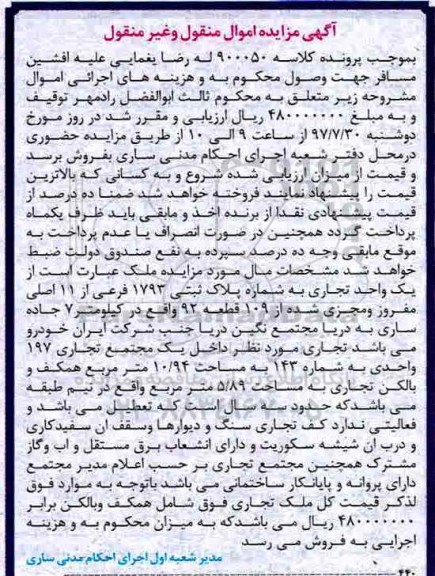 آگهی مزایده اموال منقول وغیر منقول
بموجب پرونده کلاسه ۹۰۰۰۵۰ له رضا یغمایی علیه افشین
مسافر جهت وصول محکوم به و هزینه های اجرائی اموال
مشروحه زیر متعلق به محکوم ثالث ابوالفضل رادمهر توقیف
و به مبلغ ۴۸۰۰۰۰۰۰۰۰ ریال ارزیابی و مقرر شد در روز مورخ
دوشنبه ۹۷/۷/۳۰ از ساعت ۹ الی ۱۰ از طریق مزایده حضوری
درمحل دفتر شعبه اجرای احکام مدنی ساری بفروش برسد
و قیمت از میزان ارزیابی شده شروع و به کسانی که بالاترین
قیمت را پیشنهاد نمایند فروخته خواهد شد ضمنا ده درصد از
قیمت پیشنهادی نقدا از برنده اخذ و مابقی باید ظرف یکماه
پرداخت گردد همچنین در صورت انصراف یا عدم پرداخت به
موقع مابقی وجه ده درصد سپرده به نفع صندوق دولت ضبط
خواهد شد مشخصات مال مورد مزایده ملک عبارت است از
یک واحد تجاری به شماره پلاک ثبتی ۱۷۹۳ فرعی از ۱۱ اصلی
مفروز ومجزی شده از ۱۰۹ قطعه ۹۲ واقع در کیلومتر۷ جاده
ساری به دریا مجتمع نگین دریا جنب شرکت ایران خودرو
می باشد تجاری مورد نظر داخل یک مجتمع تجاری ۱۹۷
واحدی به شماره ۱۴۳ به مساحت ۱۰/۹۴ متر مربع همکف و
بالکن تجاری به مساحت ۵/۸۹ متر مربع واقع در نیم طبقه
می باشدکه حدود سه سال است که تعطیل می باشد و
فعالیتی ندارد کف تجاری سنگ و دیوارها وسقف ان سفیدکاری
و درب ان شیشه سکوریت و دارای انشعاب برق مستقل و اب وگاز
مشترک همچنین مجتمع تجاری بر حسب اعلام مدیر مجتمع
دارای پروانه و پایانکار ساختمانی می باشد باتوجه به موارد فوق
لذکر قیمت کل ملک تجاری فوق شامل همکف وبالکن برابر
۴۸۰۰۰۰۰۰۰۰ ریال می باشدکه به میزان محکوم به و هزینه
اجرایی به فروش می رسد
مدیر شعبه اول اجرای احکام مدنی ساری
۴۴۰